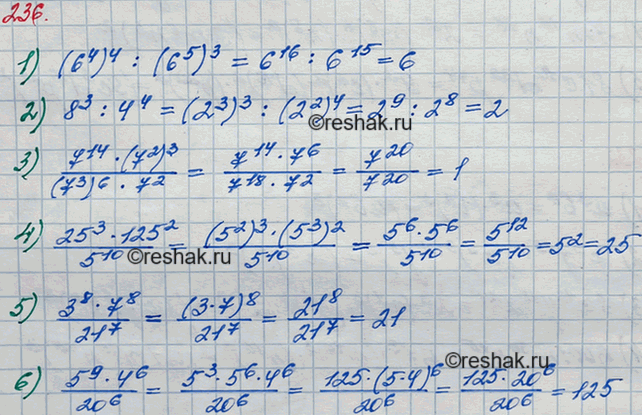 236.
1) (6⁴)⁴ : (6⁵)³ = 6¹⁶ : 6¹⁵ = 6
2) 8³ : 4⁴ = (2³)³ : (2²)⁴ = 2⁹ : 2⁸ = 2
©reshak.ru
3) 7¹⁴ · (7²)³ / (7³)⁶ · 7² = 7¹⁴ · 7⁶ / 7¹⁸ · 7² = 7²⁰ / 7²⁰ = 1
4) 25³ · 125² / 5¹⁰ = (5²)³ · (5³)² / 5¹⁰ = 5⁶ · 5⁶ / 5¹⁰ = 5¹² / 5¹⁰ = 5² = 25
©reshak.ru
5) 3⁸ · 7⁸ / 21⁷ = (3·7)⁸ / 21⁷ = 21⁸ / 21⁷ = 21
©reshak.ru
6) 5⁹ · 4⁶ / 20⁶ = 5³ · 5⁶ · 4⁶ / 20⁶ = 125 · (5·4)⁶ / 20⁶ = 125 · 20⁶ / 20⁶ = 125